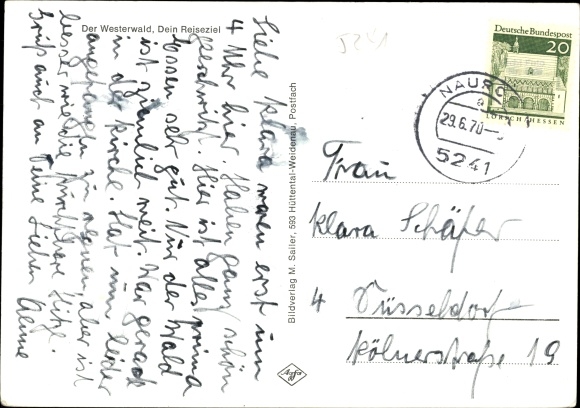 Der Westerwald, Dein Reiseziel
Liebe Klara waren erst um
4 Uhr hier. Haben ganz schön
geschwitzt. Hier ist alles prima
Essen sehr gut. Nur der Wald
ist ziemlich weit. War gerade
in der Kirche. Hat nun leider
angefangen zu regnen, aber ist
besser wie die furchtbare Hitze.
Grüß auch an Deine Lieben Aenne
Bildverlag M. Sailer, 593 Hüttental-Weidenau, Postfach
Agfa
5241
Deutsche Bundespost
20
LORSCH/HESSEN
NAURO
a
29.6.70
5241
Frau
Klara Schäfer
4 Düsseldorf
Kölnerstraße 19